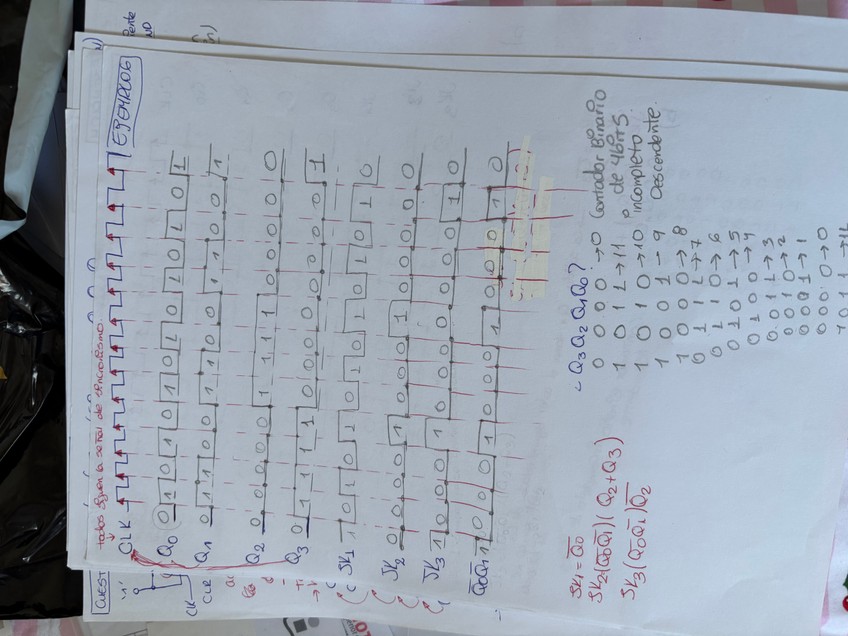 EJEMPLO6
todos siguen la señal de sincronismo
CLK
Q0 0 1 0 1 0 1 0 1 0 1 0 1 0 1
Q1 0 1 1 0 0 1 1 0 0 1 1 0 0 1
Q2 0 0 0 0 0 1 1 1 1 0 0 0 0 0
Q3 0 1 1 1 1 0 0 0 0 0 0 0 0 1
JK1 1 0 1 0 1 0 1 0 1 0 1 0 1 0
JK2 0 0 0 0 1 0 0 0 1 0 0 0 0 0
JK3 1 0 0 0 1 0 0 0 0 0 0 0 1 0
Q̅0Q̅1 1 0 0 0 1 0 0 0 1 0 0 0 1 0
JK1 = Q̅0
JK2(Q̅0Q̅1)(Q2+Q3)
JK3(Q̅0Q̅1)Q̅2
Q3 Q2 Q1 Q0?
0 0 0 0 → 0
1 0 1 1 → 11
1 0 1 0 → 10
1 0 0 1 → 9
1 0 0 0 → 8
0 1 1 1 → 7
0 1 1 0 → 6
0 1 0 1 → 5
0 1 0 0 → 4
0 0 1 1 → 3
0 0 1 0 → 2
0 0 0 1 → 1
0 0 0 0 → 0
1 0 1 1 → 11
Contador Binario
de 4bits
incompleto
Descendente.
CUEST
CLK
CLR